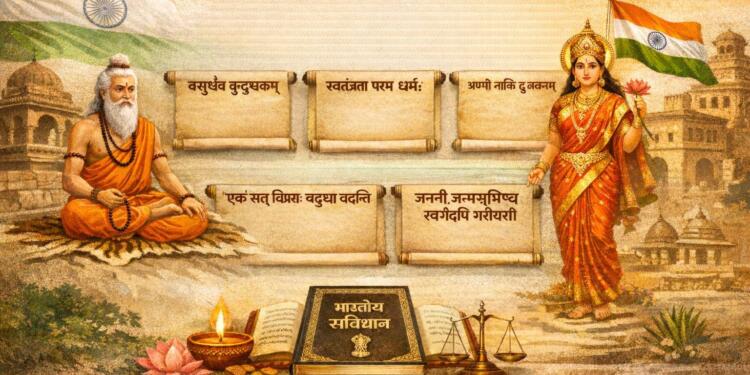 वसुर्धव वुन्दुम्रकम्
स्वतंत्रता परम धर्म:
अण्पी नाकि दु लवनम्
'एक' सत् विप्रराः बदुधा वदन्ति
जननी, जन्मसुमिष्च
स्वर्गदपि गरीयसी
भारतोय
संविधान